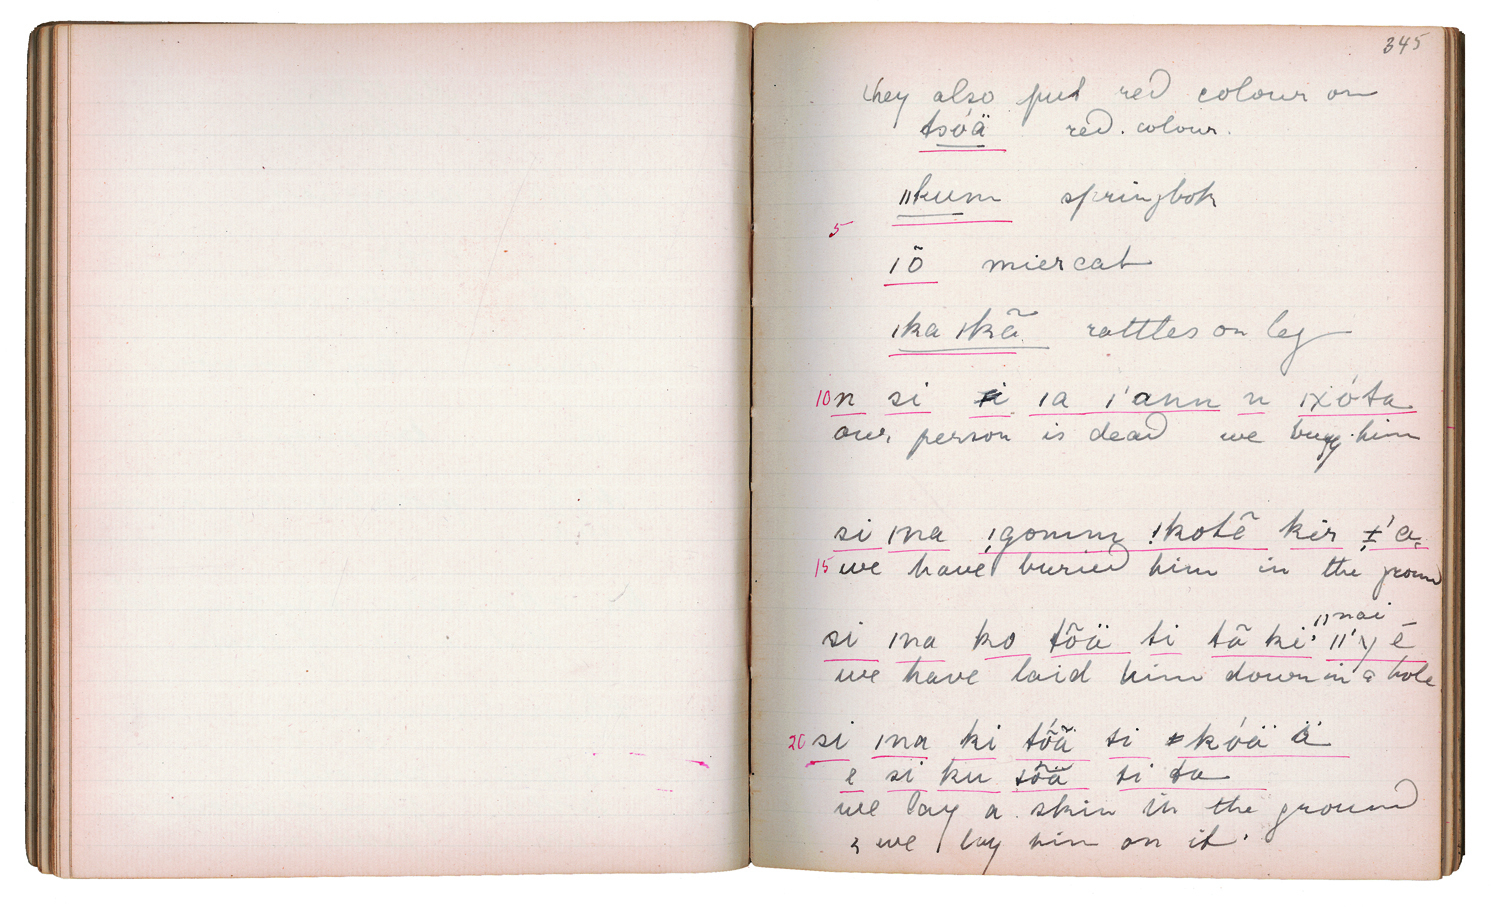 345
they also put red colour on
tsóä red. colour.
ǁkum springbok
5
ǀõ miercat
ǀka ǀkã rattles on leg
10 n si ǀa ǀ'ann n ǀxóta
our person is dead we bury him
si ǀna ǃkotẽ kir
15 we have buried him in the ground
ǁnai
si ǀna ko tõä ti tã ki ǁ'y ē
we have laid him down in a hole
20 si ǀna ki ti ǂkóä ä
e si ku ti ta
we lay a skin in the ground
& we lay him on it.